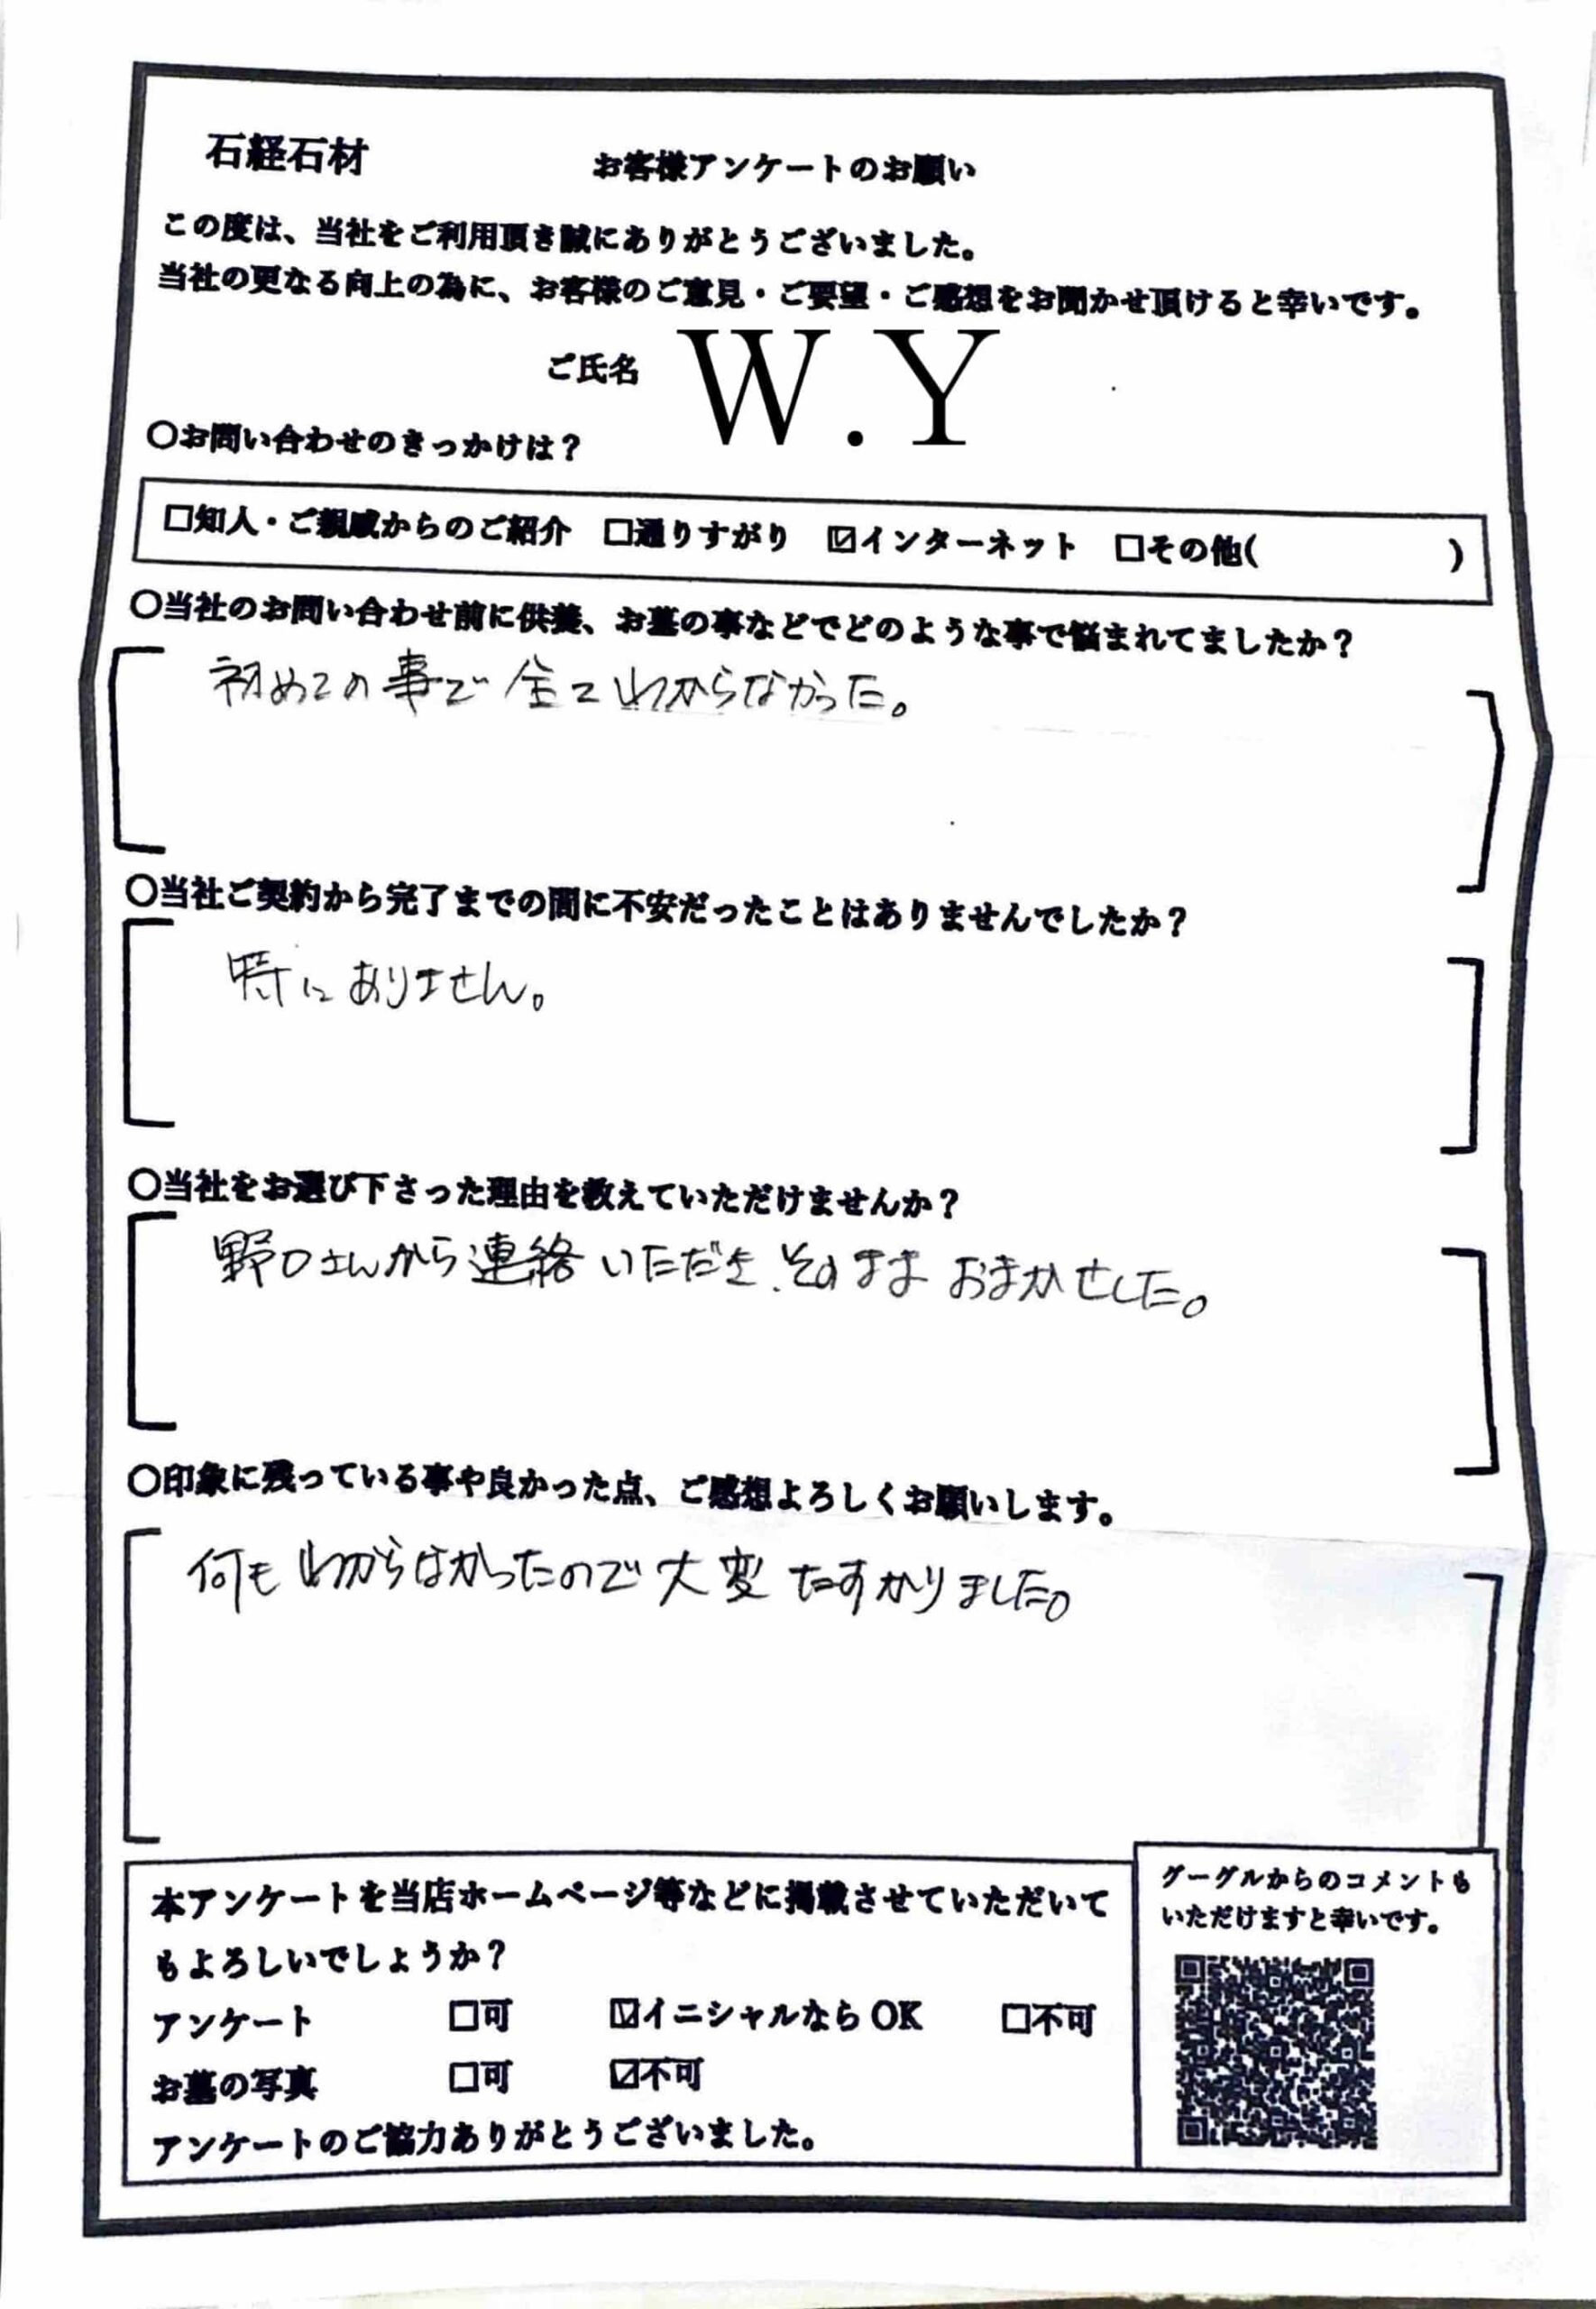 石経石材 お客様アンケートのお願い
この度は、当社をご利用頂き誠にありがとうございました。
当社の更なる向上の為に、お客様のご意見・ご要望・ご感想をお聞かせ頂けると幸いです。
ご氏名 W.Y
〇お問い合わせのきっかけは？
□知人・ご親戚からのご紹介 □通りすがり ☑インターネット □その他( )
〇当社のお問い合わせ前に供養、お墓の事などでどのような事で悩まれてましたか？
初めての事で全てわからなかった。
〇当社ご契約から完了までの間に不安だったことはありませんでしたか？
特にありません。
〇当社をお選び下さった理由を教えていただけませんか？
野口さんから連絡いただき、そのままおまかせした。
〇印象に残っている事や良かった点、ご感想よろしくお願いします。
何もわからなかったので大変たすかりました。
本アンケートを当店ホームページ等などに掲載させていただいて
もよろしいでしょうか？
アンケート □可 ☑イニシャルならOK □不可
お墓の写真 □可 ☑不可
アンケートのご協力ありがとうございました。
グーグルからのコメントも
いただけますと幸いです。